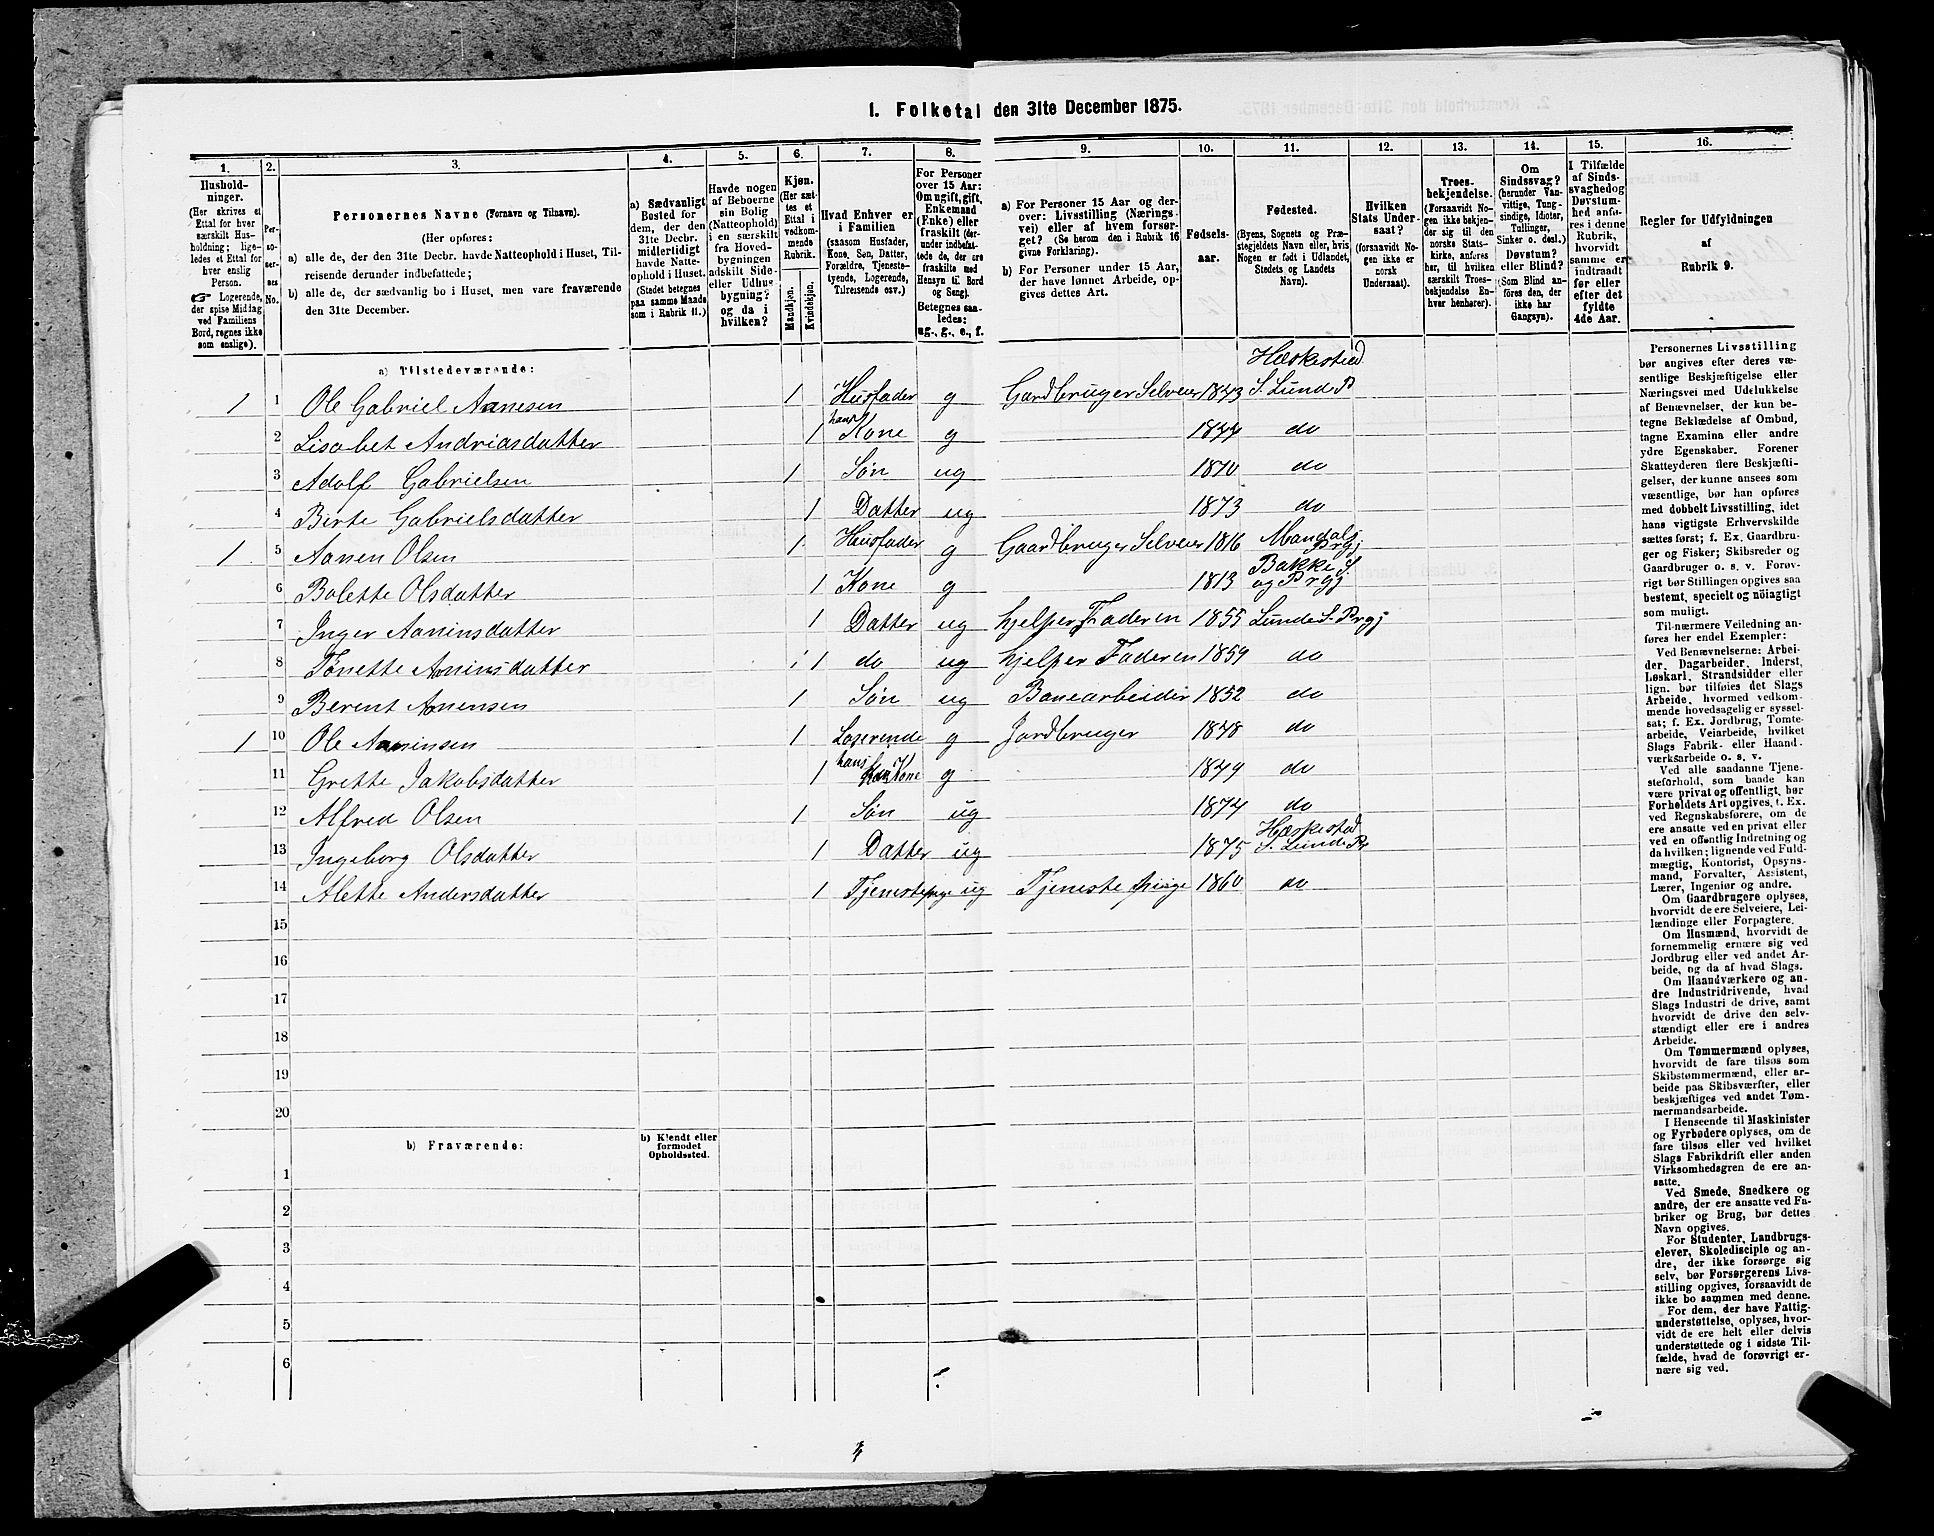 1. Folketal den 31te December 1875.
1. 2. 3. 4. 5. 6. 7. 8. 9. 10. 11. 12. 13. 14. 15. 16.
Husholdninger.
(Her skrives et
Ettal for hver
særskilt Husholdning; ligeledes
et Ettal for
hver enslig
Person.
☞ Logerende,
der spise Middag
ved Familiens
Bord, regnes ikke
som enslige).
Personernes No.
Personernes Navne (Fornavn og Tilnavn).
(Her opføres:
a) alle de, der den 31te Decbr. havde Natteophold i Huset, Tilreisende derunder indbefattede;
b) alle de, der sædvanlig bo i Huset, men vare fraværende
den 31te December.
a) Sædvanligt
Bosted for
dem, der den
31te Decbr.
midlertidigt
havde Natteophold i Huset.
(Stedet betegnes
paa samme Maade
som i Rubrik 11.)
Havde nogen
af Beboerne
sin Bolig
(Natteophold)
i en særskilt
fra Hovedbygningen
adskilt Side-
eller Udhusbygning?
og da i
hvilken?
Kjøn.
(Her sættes et
Ettal i
vedkommende
Rubrik.
Mandkjøn.
Kvindekjøn.
Hvad Enhver er
i Familien
(saasom Husfader,
Kone, Søn, Datter,
Forældre, Tjenestetyende, Logerende,
Tilreisende osv.)
For Personer
over 15 Aar:
Om ugift, gift,
Enkemand
(Enke) eller
fraskilt (derunder indbefattede de, der ere
fraskilte med
Hensyn til Bord
og Seng).
Betegnes saaledes:
ug., g., e., f.
a) For Personer 15 Aar og derover: Livsstilling (Næringsvei) eller af hvem forsørget? (Se herom den i Rubrik 16
givne Forklaring).
b) For Personer under 15 Aar,
der have lønnet Arbeide, opgives dettes Art.
Fødselsaar.
Fødested.
(Byens, Sognets og Præstegjeldets Navn eller, hvis
Nogen er født i Udlandet,
Stedets og Landets
Navn).
Hvilken
Stats Undersaat?
(forsaavidt Nogen ikke er
norsk
Undersaat).
Troesbekjendelse.
(Forsaavidt Nogen ikke bekjender sig til den
norske Statskirke, anføres
her, til hvilken
særskilt Troesbekjendelse Enhver henhører).
Om
Sindssvag?
(herunder Vanvittige, Tungsindige, Idioter,
Tullinger,
Sinker o. desl.)
Døvstum?
eller Blind?
(Som Blind anføres den, der
ikke har
Gangsyn).
I Tilfælde
af Sindssvaghed og
Døvstumhed anføres i denne
Rubrik,
hvorvidt
samme er
indtraadt
før eller
efter det
fyldte
4de Aar.
Regler for Udfyldningen
af
Rubrik 9.
a) Tilstedeværende:
1 1 Ole Gabriel Aanesen 1 Husfader g Gardbruger Selveier 1843 Hæskestad S. Lunde P
2 Lisabet Andriasdatter 1 hans Kone g 1844 do
3 Adolf Gabrielsen 1 Søn ug 1870 do
4 Birte Gabrielsdatter 1 Datter ug 1873 do
1 5 Aanen Olsen 1 Husfader g Gaardbruger Selveier 1816 Mandals Prgj
6 Bolette Olsdatter 1 Kone g 1813 Bakke S. og Prgj
7 Inger Aaninsdatter 1 Datter ug hjelper Faderen 1855 Lunde S. Prgj
8 Tønette Aaninsdatter 1 do ug hjelper Faderen 1859 do
9 Berent Aanensen 1 Søn ug Banearbeider 1852 do
1 10 Ole Aaninsen 1 Loserende g Jordbruger 1848 do
11 Grette Jakobsdatter 1 hans Kone g 1849 do
12 Alfred Olsen 1 Søn ug 1874 do
13 Ingeborg Olsdatter 1 Datter ug 1875 Hæskestad S. Lunde Pr
14 Alette Andersdatter 1 Tjenestepige ug Tjeneste pige 1860 do
15
16
17
18
19
20
b) Fraværende:
b) Kjendt eller
formodet
Opholdssted.
1
2
3
4
5
6
Personernes Livsstilling
bør angives efter deres væsentlige Beskjæftigelse eller
Næringsvei med Udelukkelse
af Benævnelser, der kun betegne Beklædelse af Ombud,
tagne Examina eller andre
ydre Egenskaber. Forener
Skatteyderen flere Beskjæftigelser, der kunne ansees som
væsentlige, bør han opføres
med dobbelt Livsstilling, idet
hans vigtigste Erhvervskilde
sættes først; f. Ex. Gaardbruger og Fisker; Skibsreder og
Gaardbruger o. s. v. Forøvrigt bør Stillingen opgives saa
bestemt, specielt og nøiagtigt
som muligt.
Til nærmere Veiledning anføres her endel Exempler:
Ved Benævnelserne: Arbeider, Dagarbeider, Inderst,
Løskarl, Strandsidder eller
lign. bør tilføies det Slags
Arbeide, hvormed vedkommende hovedsagelig er sysselsat; f. Ex. Jordbrug, Tomtearbeide, Veiarbeide, hvilket
Slags Fabrik- eller Haandværksarbeide o. s. v.
Ved alle saadanne Tjenesteforhold, som baade kan
være privat og offentligt, bør
Forholdets Art opgives, t. Ex.
ved Regnskabsførere, om de
ere ansatte ved en privat eller
ved en offentlig Indretning og
da hvilken; lignende ved Fuldmægtig, Kontorist, Opsynsmand, Forvalter, Assistent,
Lærer, Ingeniør og andre.
Om Gaardbrugere oplyses,
hvorvidt de ere Selveiere, Leilændinge eller Forpagtere.
Om Husmænd, hvorvidt de
fornemmelig ernære sig ved
Jordbrug eller ved andet Arbeide, og da af hvad Slags.
Om Haandværkere og andre Industridrivende, hvad
Slags Industri de drive, samt
hvorvidt de drive den selvstændigt eller ere i andres
Arbeide.
Om Tømmermænd oplyses,
hvorvidt de fare tilsøs som
Skibstømmermænd, eller arbeide paa Skibsværfter, eller
beskjæftiges ved andet Tømmermandsarbeide.
I Henseende til Maskinister
og Fyrbødere oplyses, om de
fare tilsøs eller ved hvilket
Slags Fabrikdrift eller anden
Virksomhedsgren de ere ansatte.
Ved Smede, Snedkere og
andre, der ere ansatte ved Fabriker og Brug, bør dettes
Navn opgives.
For Studenter, Landbrugselever, Skoledisciple og andre, der ikke forsørge sig
selv, bør Forsørgerens Livsstilling opgives, forsaavidt de
ikke bo sammen med denne.
For dem, der have Fattigunderstøttelse, oplyses, hvorvidt de ere helt eller delvis
understøttede og i sidste Tilfælde, hvad de forøvrigt ernære sig ved.